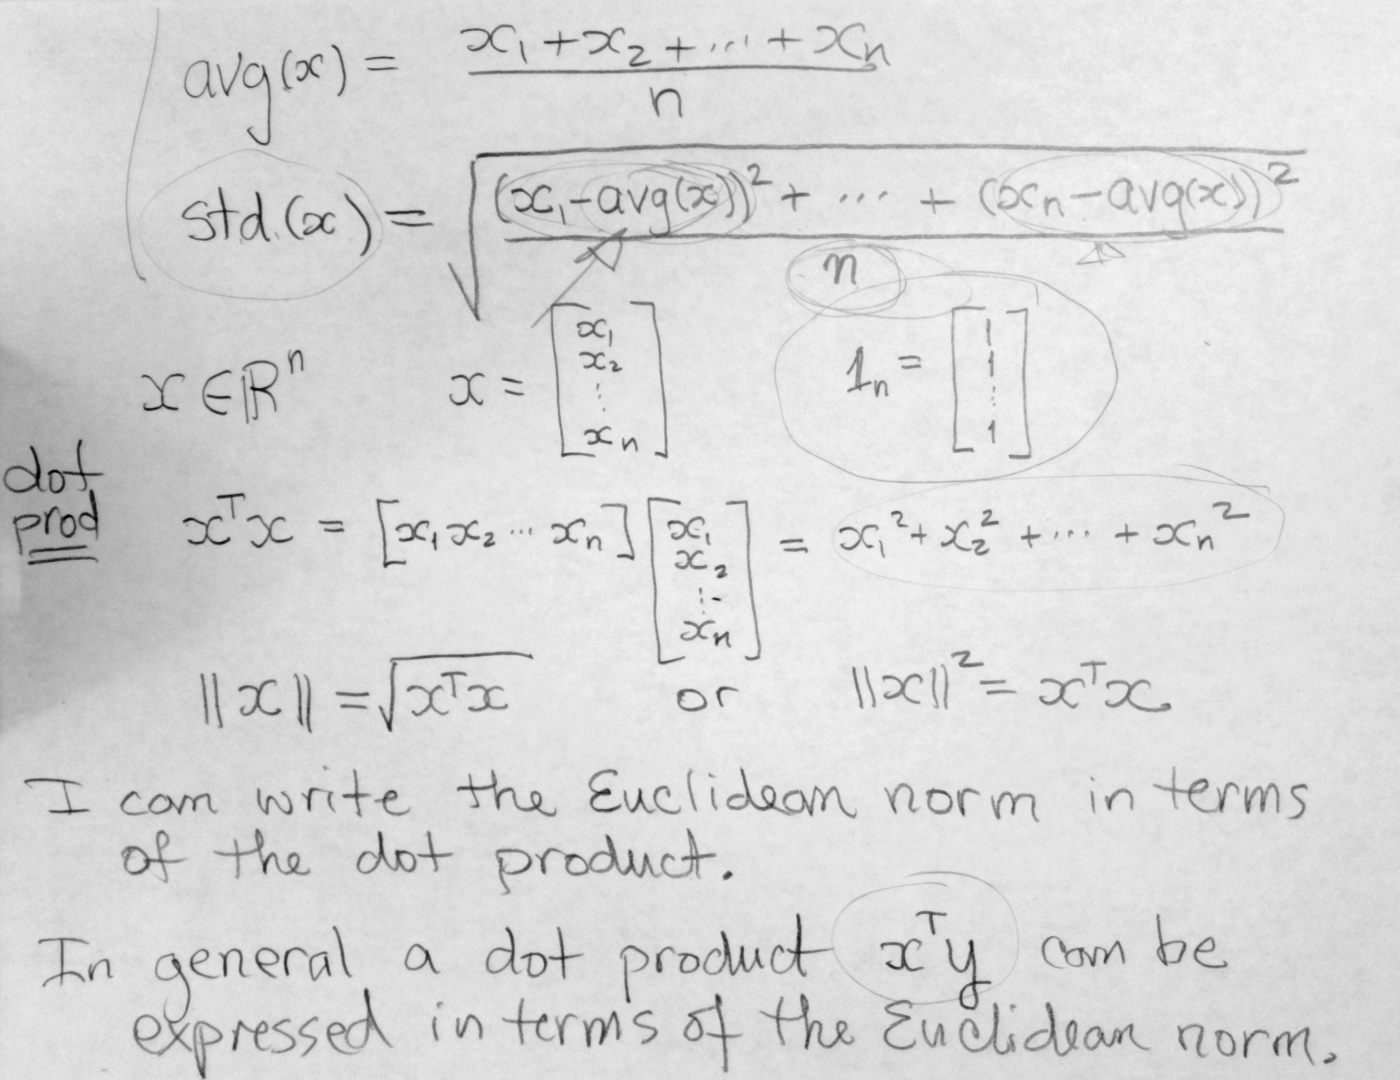 avg(x) = x₁ + x₂ + ... + xₙ / n
std.(x) = √ (x₁ - avg(x))² + ... + (xₙ - avg(x))² / n
x ∈ ℝⁿ x = [x₁ x₂ ⋮ xₙ] 1ₙ = [1 1 ⋮ 1]
dot prod
xᵀx = [x₁ x₂ ... xₙ] [x₁ x₂ ⋮ xₙ] = x₁² + x₂² + ... + xₙ²
||x|| = √xᵀx or ||x||² = xᵀx
I can write the Euclidean norm in terms
of the dot product.
In general a dot product xᵀy can be
expressed in terms of the Euclidean norm.